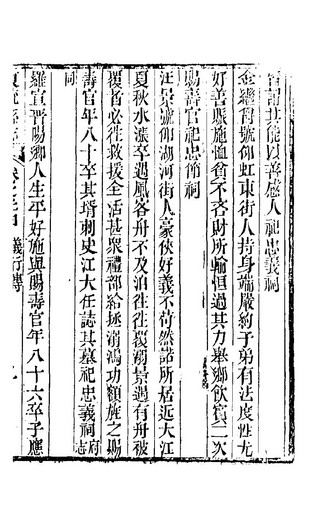 能以善感人祀忠義祠
金繼母號仰虹東街人持身端嚴約子弟有法度性尤
好善賑施恤貧不吝財所輸恒過其力舉鄉飲賓二次
賜壽官祀忠義祠
汪景號仰湖河街人豪俠好義不苟然諾所居近大江
夏秋水漲卒遇風客舟不及泊往往覆溺景遇有舟被
覆者必往救援全活甚衆禮部給拯溺鴻功額旌之賜
壽官年八十卒其壻刺史江大任誌其墓祀忠義祠府志
羅宣晋陽鄉人生平好施與賜壽官年八十六卒子應
同
義行傳